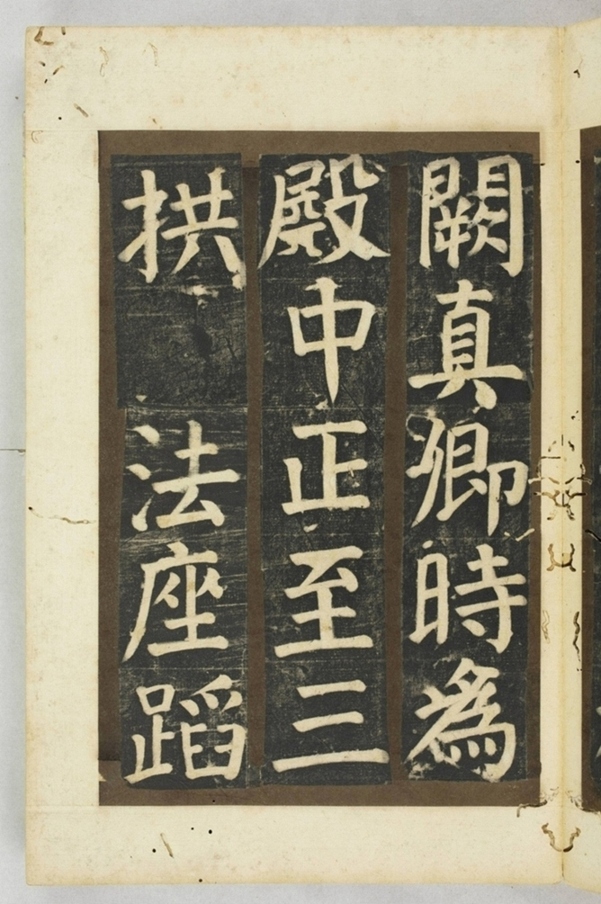 闕真卿時為
殿中正至三
拱 法座蹈